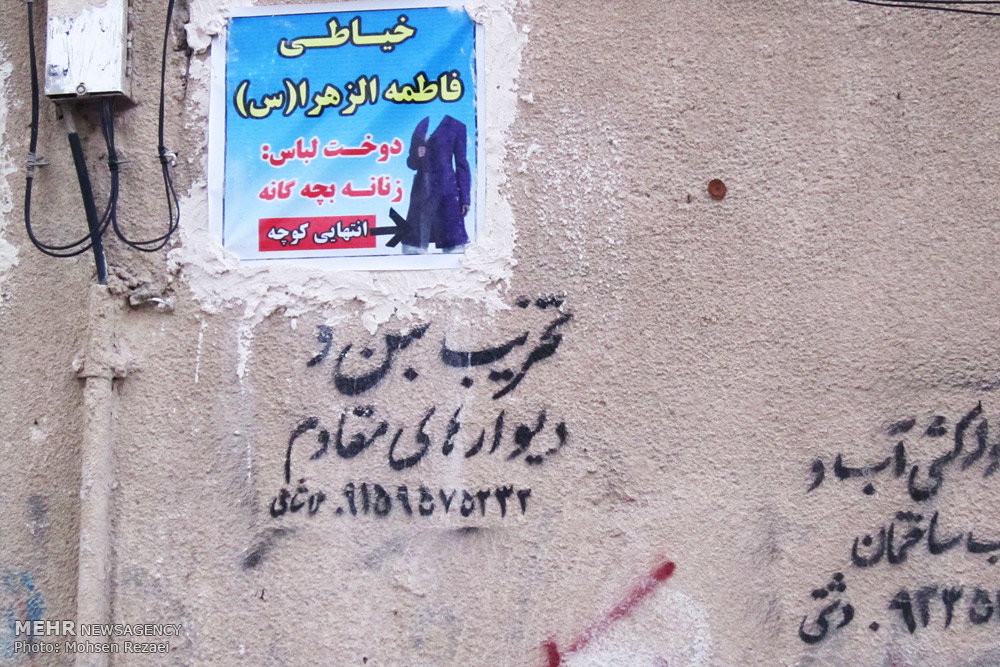 خیاطی
فاطمه الزهرا(س)
دوخت لباس:
زنانه بچه گانه
انتهایی کوچه
تخریب بتن و
دیوارهای مقاوم
۰۹۱۵۹۵۷۵۲۳۲
آب و
ساختمان
دشتی ۰۹۳۵
MEHR NEWSAGENCY
Photo: Mohsen Rezaei